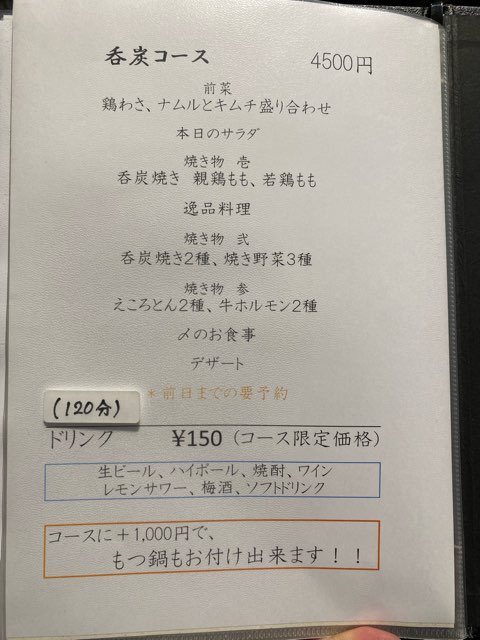 呑炭コース 4500円
前菜
鶏わさ、ナムルとキムチ盛り合わせ
本日のサラダ
焼き物 壱
呑炭焼き 親鶏もも、若鶏もも
逸品料理
焼き物 弐
呑炭焼き2種、焼き野菜3種
焼き物 参
えころとん2種、牛ホルモン2種
〆のお食事
デザート
*前日までの要予約
(120分)
ドリンク ¥150(コース限定価格)
生ビール、ハイボール、焼酎、ワイン
レモンサワー、梅酒、ソフトドリンク
コースに+1,000円で、
もつ鍋もお付け出来ます!!